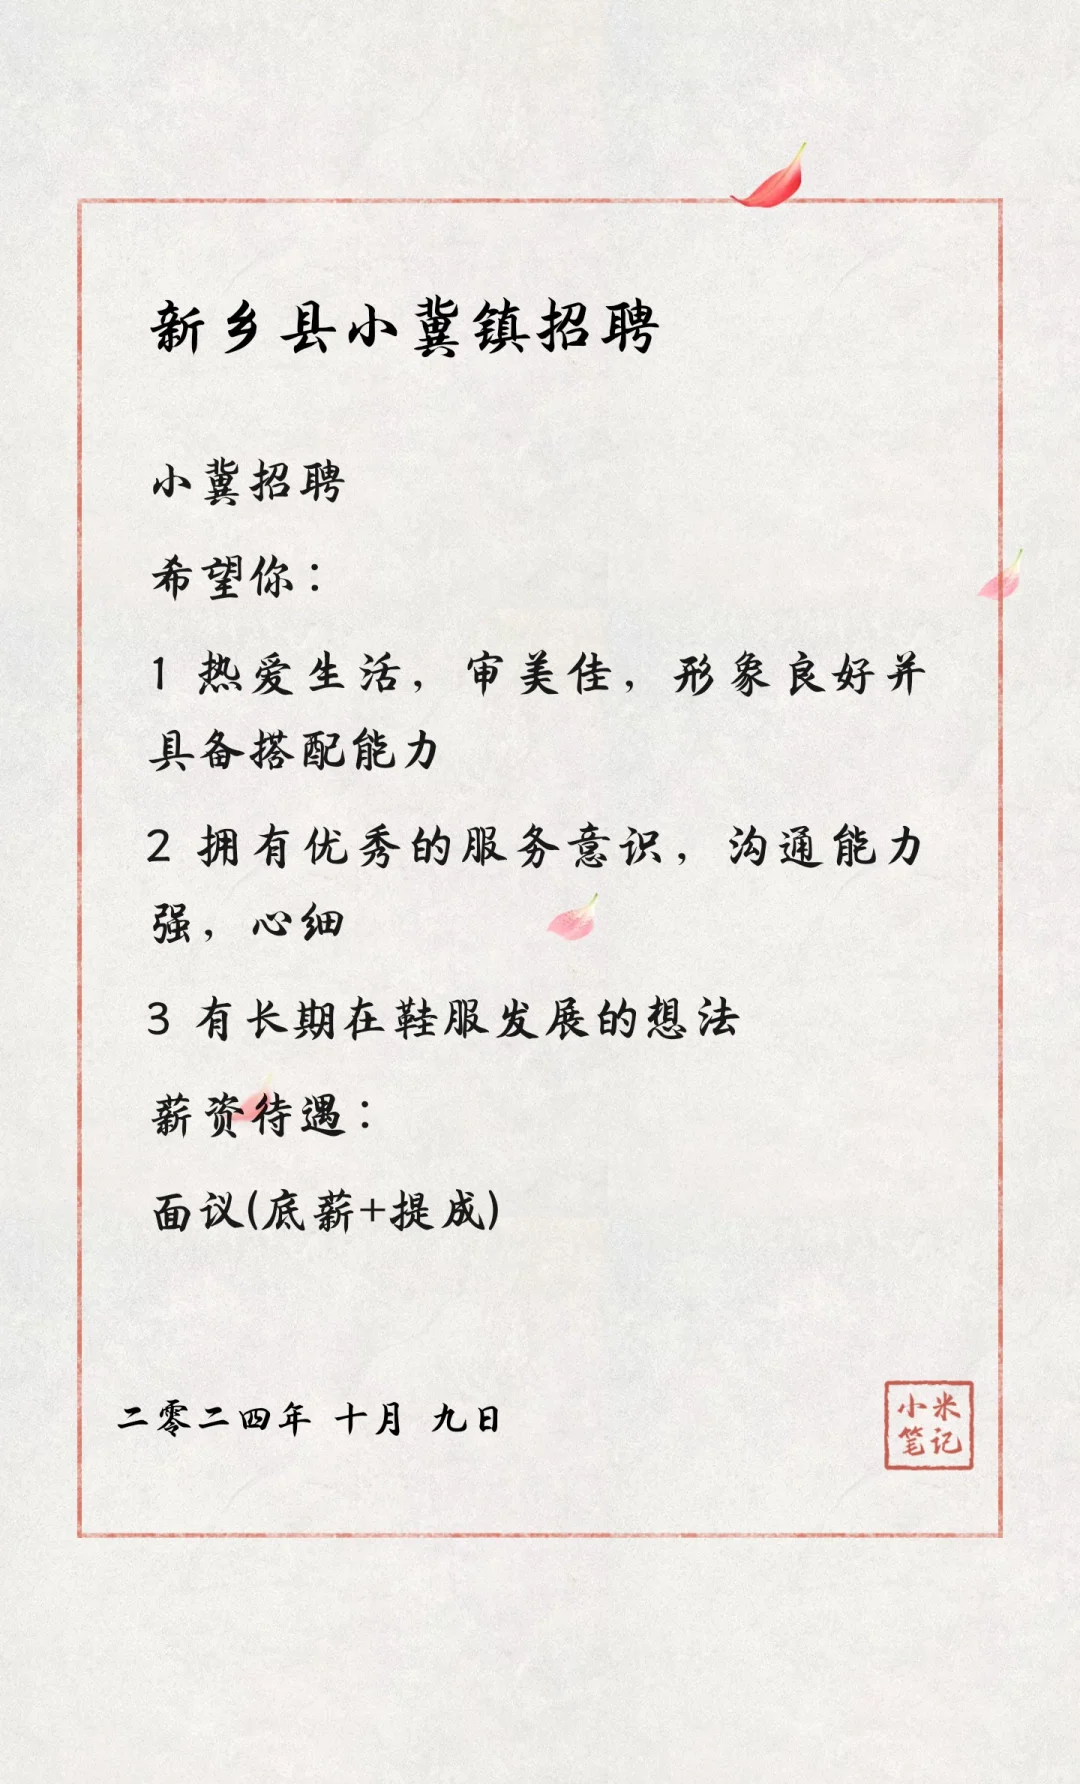 新乡县小冀镇招聘
小冀招聘
希望你：
1 热爱生活，审美佳，形象良好并
具备搭配能力
2 拥有优秀的服务意识，沟通能力
强，心细
3 有长期在鞋服发展的想法
薪资待遇：
面议(底薪+提成)
二零二四年 十月 九日
小米
笔记